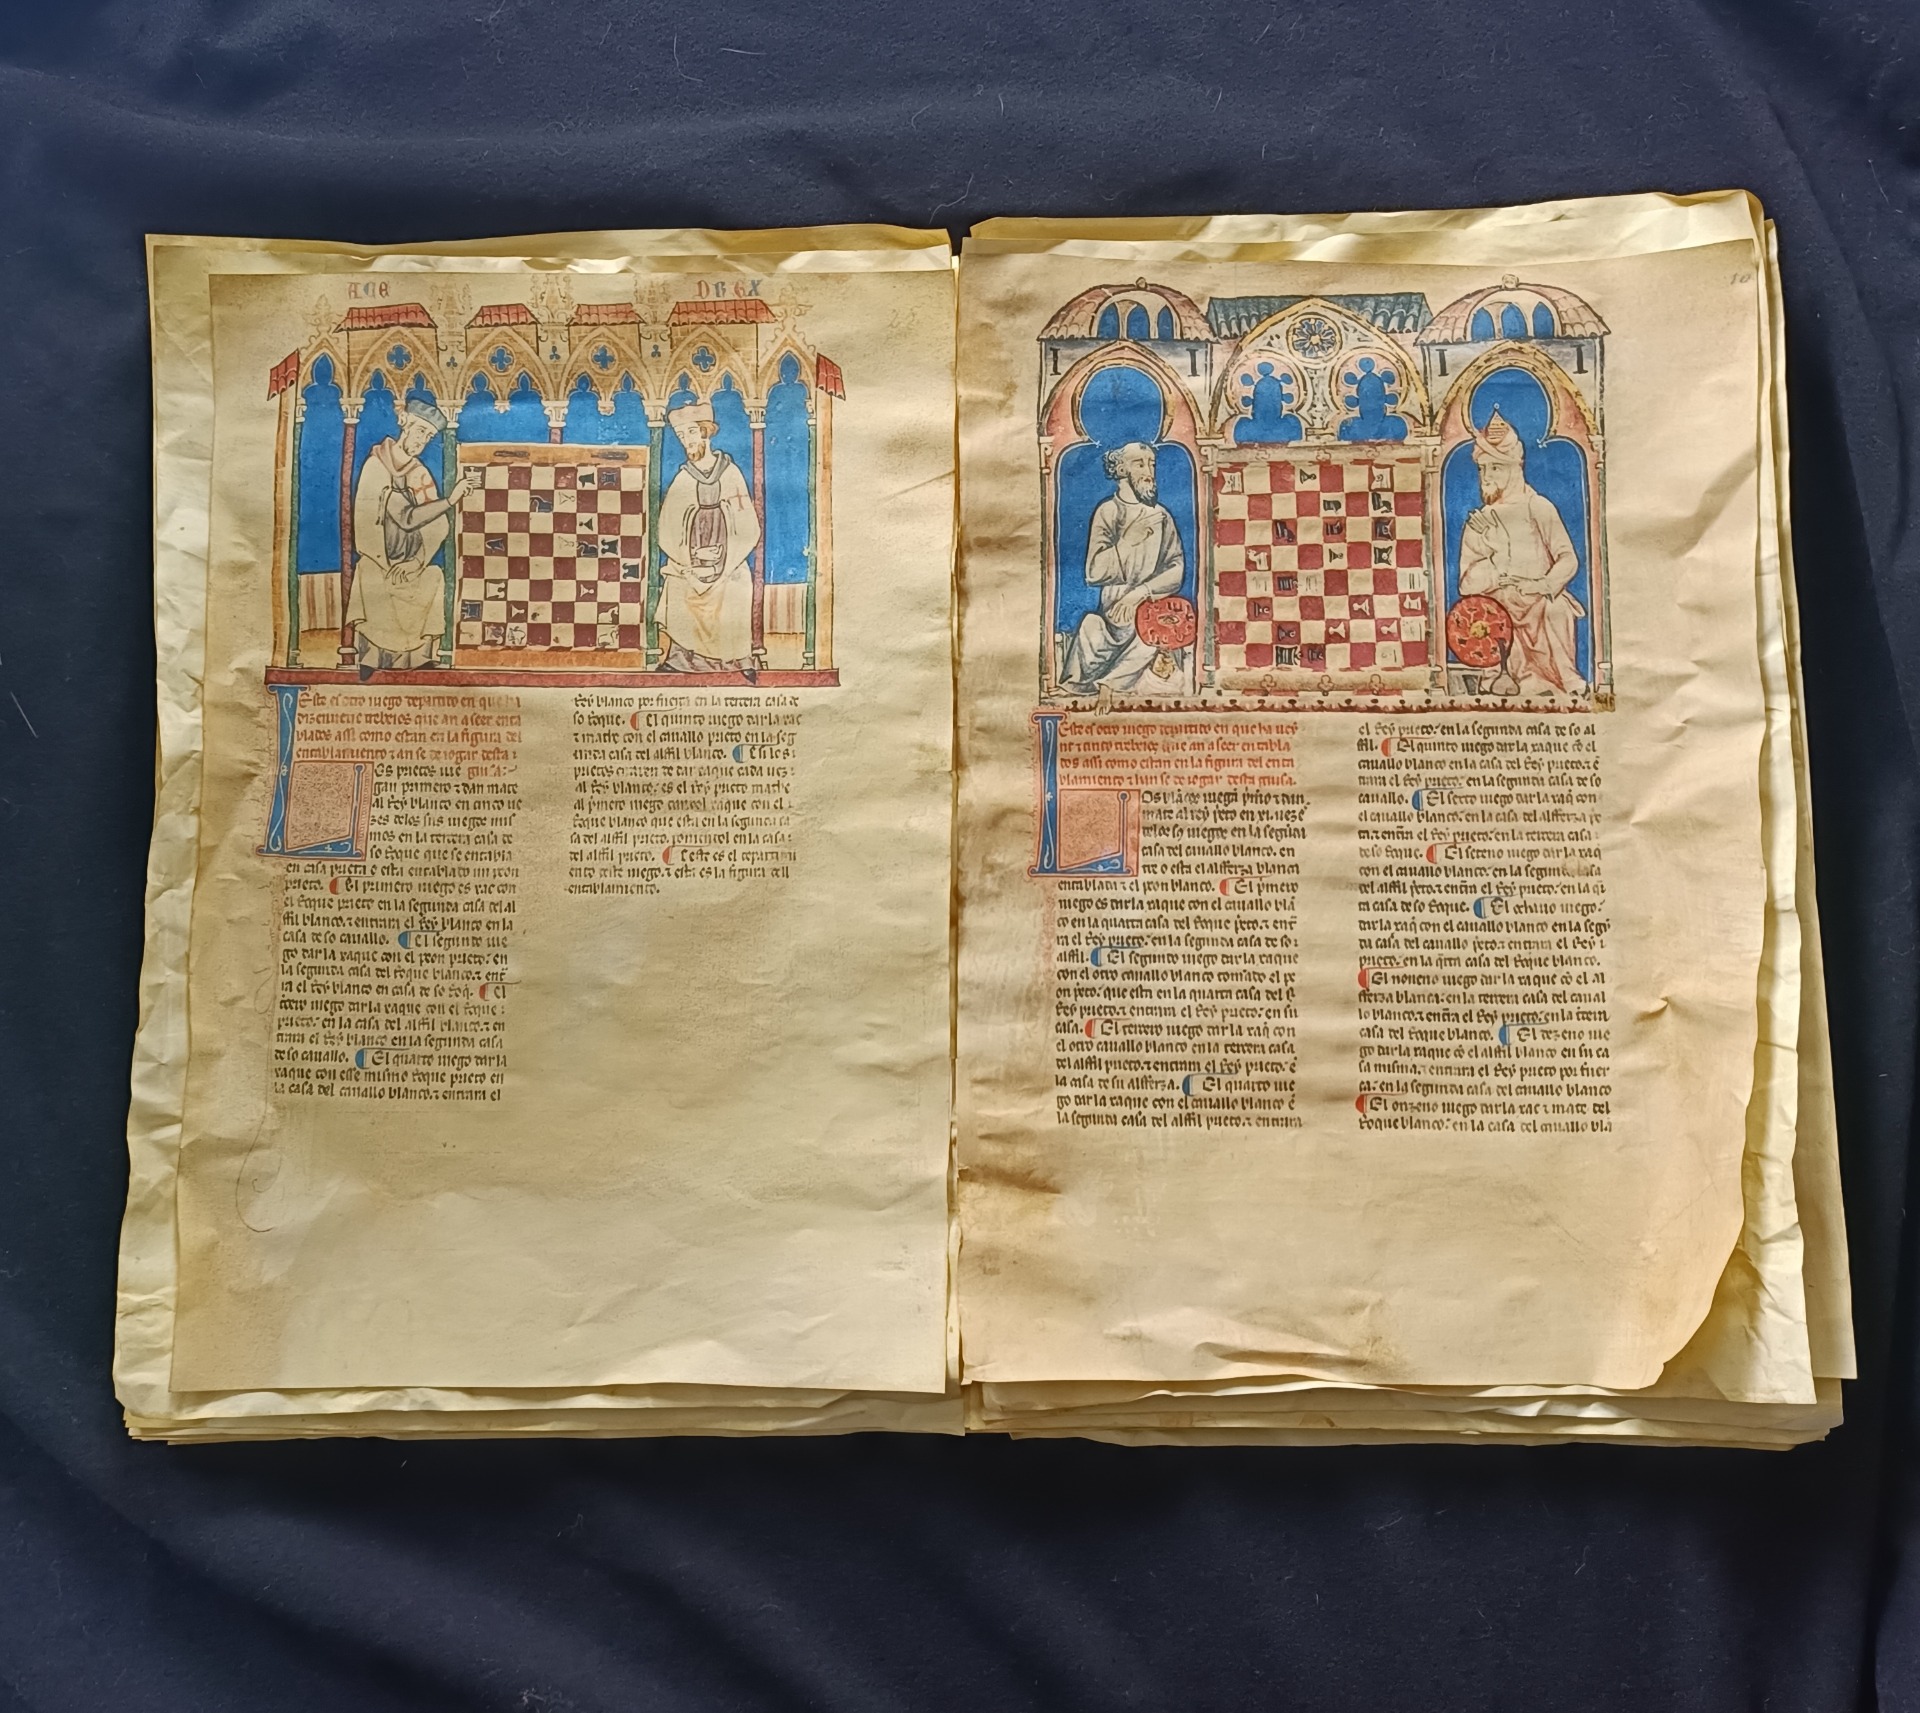 ACE
DREX
Este es otro iuego departido en que ha
dizenueue trebeios que an a seer enta
blados assi como estan en la figura del
entablamiento τ an se de iogar desta
guisa:
Los prietos iue
gan primero τ dan mate
al Rey blanco en cinco ue
zes delos sus iuegos mis
mos en la tercera casa de
so Roque que se entabla
en casa prieta τ esta entablado un peon
prieto. El primero iuego es xac con
el Roque prieto en la segunda casa del al
ffil blanco. τ entrara el Rey blanco en la
casa de so cauallo. El segundo iue
go dar la xaque con el peon prieto: en
la segunda casa del Roque blanco. τ ent
ra el Rey blanco en casa de so Roq. El
tercero iuego dar la xaque con el Roque:
prieto: en la casa del alffil blanco. τ en
trara el Rey blanco en la segunda casa
de so cauallo. El quarto iuego dar la
xaque con esse mismo Roque prieto en
la casa del cauallo blanco. τ entrara el
Rey blanco por fuerça en la tercera casa de
so Roque. El quinto iuego dar la xac
τ mathe con el cauallo prieto en la seg
unda casa del alffil blanco. E si los:
prietos erraren de dar xaque cada uez:
al Rey blanco: es el rey prieto mathe
al primero iuego con el xaque con el:
Roque blanco que esta en la segunda ca
sa del alffil prieto. poniendol en la casa:
del alffil prieto. E este es el departimi
ento deste iuego. τ esta es la figura dell
entablamiento.
10
Este es otro iuego departido en que ha ueỹ
nt τ cinco trebeios que an a seer entabla
dos assi como estan en la figura del enta
blamiento τ han se de iogar desta guisa.
Los blãcos iuegã p̃mo τ dan
mate al rey p̃eto en xi. uezes
delos sos iuegos en la segũda
casa del cauallo blanco. en
que o esta el alfferza blanca
entablada τ el peon blanco. El p̃mero
iuego es dar la xaque con el cauallo blã
co en la quarta casa del Roque p̃eto. τ ent
ra el Rey prieto: en la segunda casa de so:
alffil. El segundo iuego dar la xaque
con el otro cauallo blanco tomãdo el pe
on p̃eto: que esta en la quarta casa del
Rey prieto. τ entrara el Rey prieto: en su
casa. El tercero iuego dar la xaq̃ con
el otro cauallo blanco en la tercera casa
del alffil prieto. τ entrara el Rey prieto: ẽ
la casa de su alfferza. El quarto iue
go dar la xaque con el cauallo blanco ẽ
la segunda casa del alffil prieto. τ entrara
el Rey prieto: en la segunda casa de so al
ffil. El quinto iuego dar la xaque cõ el
cauallo blanco en la casa del Rey prieto. τ ẽ
trara el Rey prieto: en la segunda casa de so
cauallo. El sexto iuego dar la xaq̃ con
el cauallo blanco. en la casa del alfferza p̃e
to. τ entrã el Rey prieto: en la tercera casa:
de so Roque. El seteno iuego dar la xaq̃
con el cauallo blanco. en la segunda casa
del alffil p̃eto. τ entrã el Rey prieto: en la q̃r
ta casa de so Roque. El ochauo iuego:
dar la xaq̃ con el cauallo blanco en la segũ
da casa del cauallo p̃eto. τ entrara el Rey:
prieto: en la q̃rta casa del Roque blanco.
El noueno iuego dar la xaque cõ el al
fferza blanca: en la tercera casa del caual
lo blanco. τ entrã el Rey prieto: en la tcera
casa del Roque blanco. El dezeno iue
go dar la xaque cõ el alffil blanco en su ca
sa misma. τ entrara el Rey prieto por fuer
ça: en la segunda casa del cauallo blanco
El onzeno iuego dar la xac τ mate del
Roque blanco: en la casa del cauallo bla